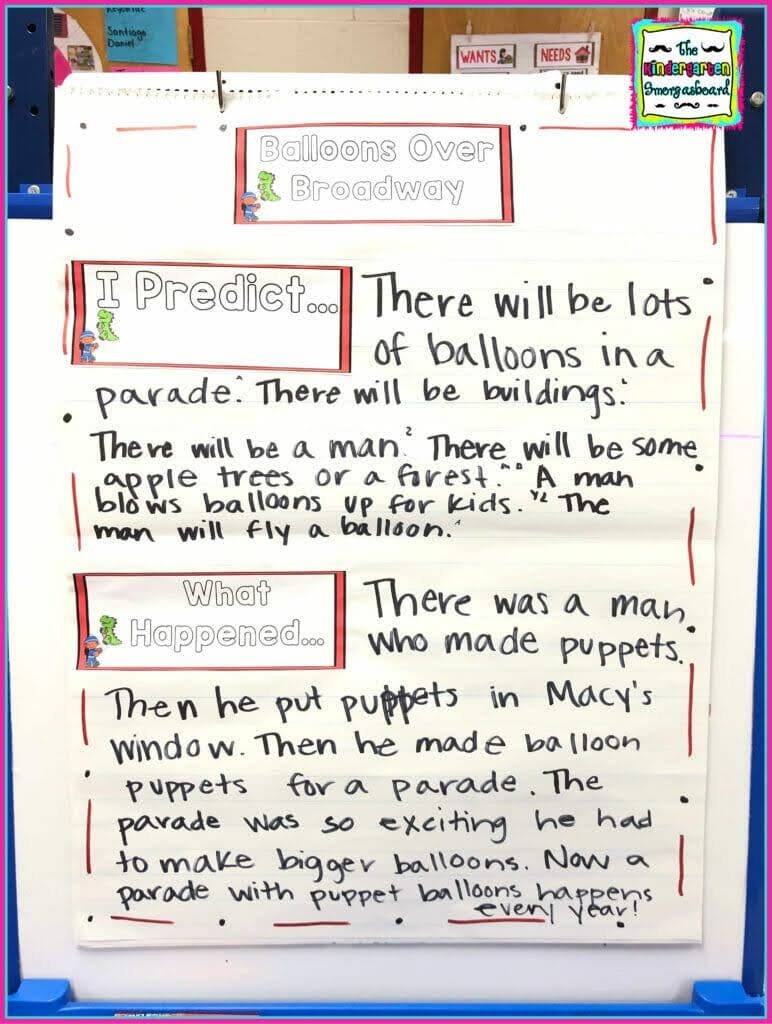 Keyonnie
Santiago
Daniel
WANTS
NEEDS
The
Kindergarten
Smorgasboard
Balloons Over
Broadway
I Predict...
There will be lots
of balloons in a
parade. There will be buildings.
There will be a man.² There will be some
apple trees or a forest. A man
blows balloons up for kids. The
man will fly a balloon.
What
Happened...
There was a man
who made puppets.
Then he put puppets in Macy's
window. Then he made balloon
puppets for a parade. The
parade was so exciting he had
to make bigger balloons. Now a
parade with puppet balloons happens
every year!